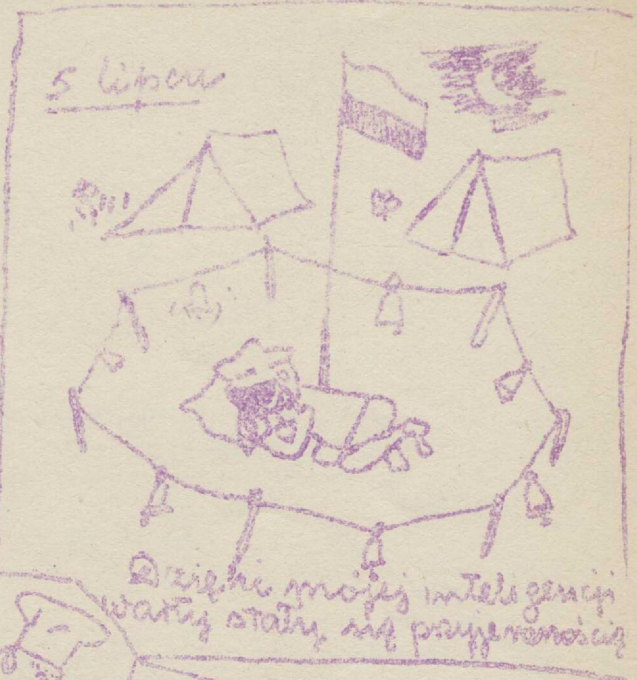 5 lipca
Dzięki mojej inteligencji
warty stały się przyjemnością